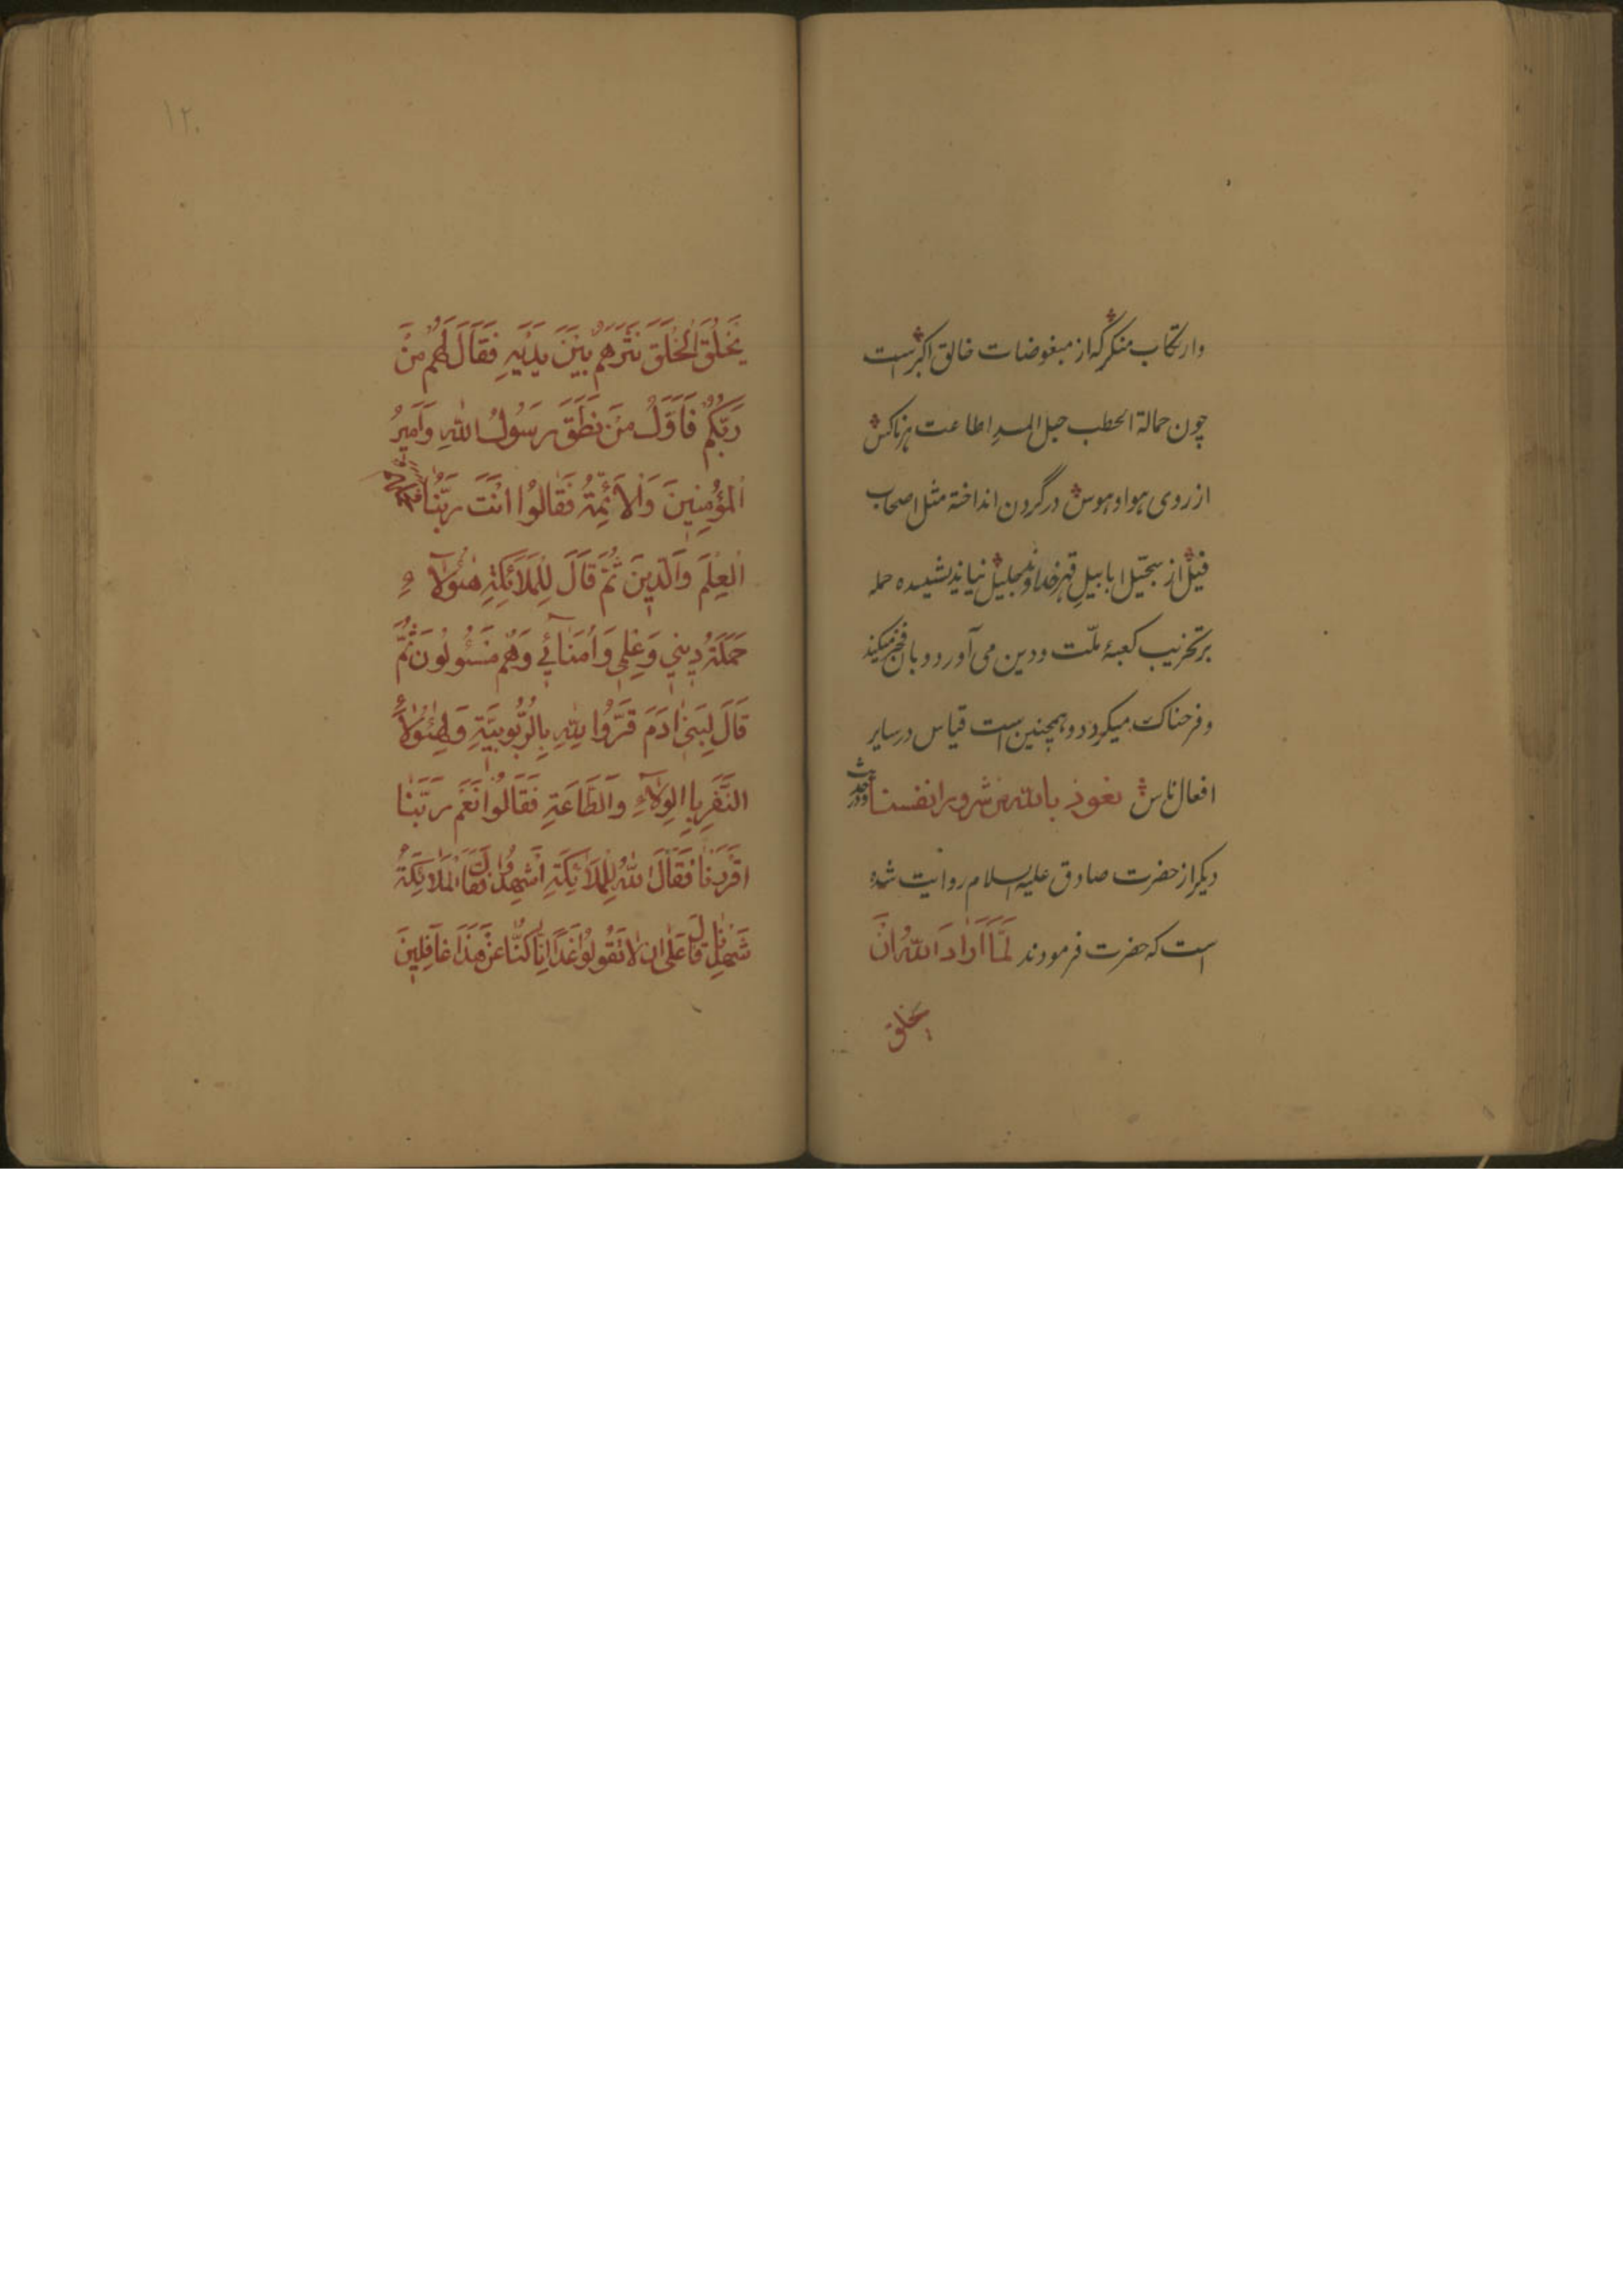 وارتکاب منکر که از مبغوضات خالق اکبر است
چون حمالة الحطب حبل المسد اطاعت هر ناکس
از روی هوا و هوس در گردن انداخته مثل اصحاب
فیل از سجّیل ابابیلِ قهر خداوند جلیل نیاندیشیده حمله
بر تخریب کعبهٔ ملّت و دین می آورد و بان فخر میکند
و فرحناک میگردد و همچنین است قیاس در سایر
افعال ناس نعوذ بالله من شرور انفسنا و در حدیث
دیکر از حضرت صادق علیه السلام روایت شده
است که حضرت فرمودند لَمَّا اَرَادَ اللهُ اَنْ
یخلق
۱۲۰
يَخْلُقَ الْخَلْقَ نَثَرَهُمْ بَيْنَ يَدَيْهِ فَقَالَ لَهُمْ مَنْ
رَبُّكُمْ فَاَوَّلُ مَنْ نَطَقَ رَسُولُ اللهِ وَاَمِيرُ
الْمُؤْمِنِينَ وَالْاَئِمَّةُ فَقَالُوا اَنْتَ رَبُّنَا فحملهم
الْعِلْمَ وَالدِّينَ ثُمَّ قَالَ لِلْمَلَائِكَةِ هٰؤُلَاءِ
حَمَلَةُ دِينِي وَعِلْمِي وَاُمَنَائِي وَهُمْ مَسْئُولُونَ ثُمَّ
قَالَ لِبَنِي اٰدَمَ قَرُّوا لِلهِ بِالرُّبُوبِيَّةِ وَلِهٰؤُلَاءِ
النَّفَرِ بِالْوِلَاءِ وَالطَّاعَةِ فَقَالُوا نَعَمْ رَبَّنَا
اَقْرَرْنَا فَقَالَ اللهُ لِلْمَلَائِكَةِ اَشْهِدُوا فَقَالَ الْمَلَائِكَةُ
شَهِدْنَا قال عَلٰى اَنْ لَا تَقُولُوا غَدًا اِنَّا كُنَّا عَنْ هٰذَا غَافِلِينَ